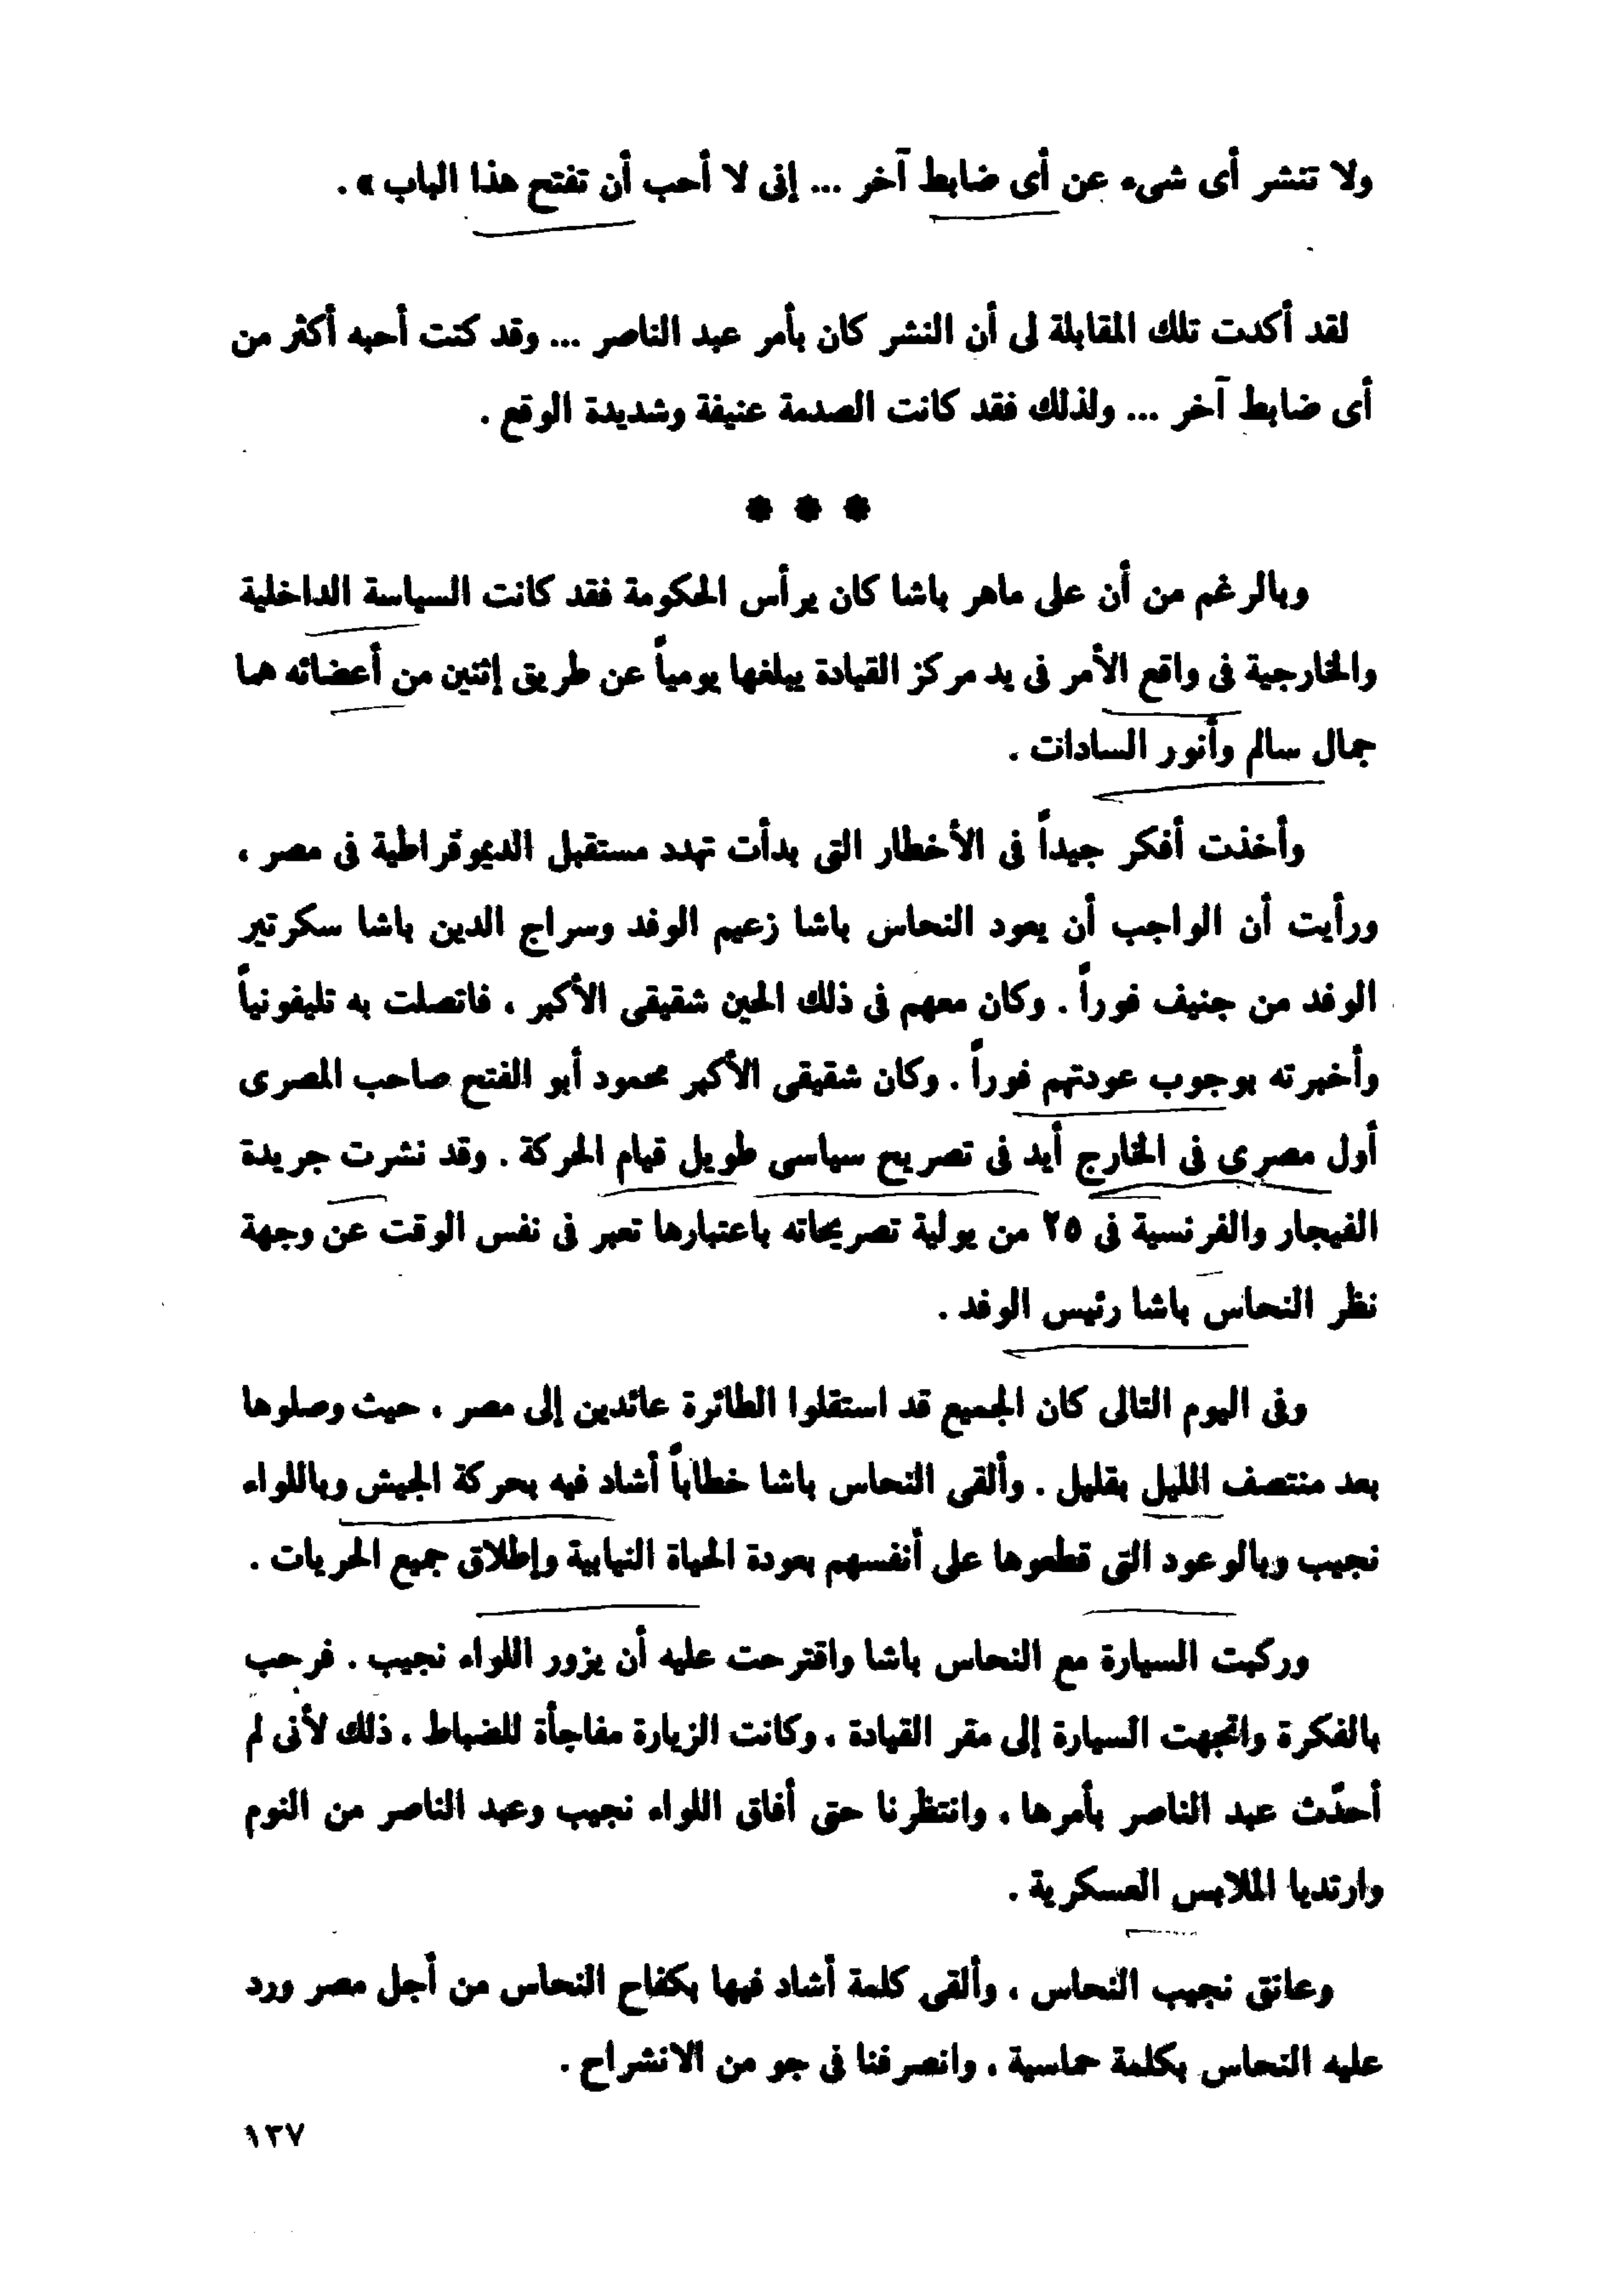 ولا تنشر أى شىء عن أى ضابط آخر ... إنى لا أحب أن تفتح هذا الباب » .
لقد أكدت تلك المقابلة لى أن النشر كان بأمر عبد الناصر ... وقد كنت أحبه أكثر من
أى ضابط آخر ... ولذلك فقد كانت الصدمة عنيفة وشديدة الوقع .
* * *
وبالرغم من أن على ماهر باشا كان يرأس الحكومة فقد كانت السياسة الداخلية
والخارجية فى واقع الأمر فى يد مركز القيادة يبلغها يومياً عن طريق إثنين من أعضائه هما
جمال سالم وأنور السادات .
وأخذت أفكر جيداً فى الأخطار التى بدأت تهدد مستقبل الديموقراطية فى مصر ،
ورأيت أن الواجب أن يعود النحاس باشا زعيم الوفد وسراج الدين باشا سكرتير
الوفد من جنيف فوراً . وكان معهم فى ذلك الحين شقيقى الأكبر ، فاتصلت به تليفونياً
وأخبرته بوجوب عودتهم فوراً . وكان شقيقى الأكبر محمود أبو الفتح صاحب المصرى
أول مصرى فى الخارج أيد فى تصريح سياسى طويل قيام الحركة . وقد نشرت جريدة
الفيجار والفرنسية فى ٢٥ من يولية تصريحاته باعتبارها تعبر فى نفس الوقت عن وجهة
نظر النحاس باشا رئيس الوفد .
وفى اليوم التالى كان الجميع قد استقلوا الطائرة عائدين إلى مصر ، حيث وصلوها
بعد منتصف الليل بقليل . وألقى النحاس باشا خطاباً أشاد فيه بحركة الجيش وباللواء
نجيب وبالوعود التى قطعوها على أنفسهم بعودة الحياة النيابية وإطلاق جميع الحريات .
وركبت السيارة مع النحاس باشا واقترحت عليه أن يزور اللواء نجيب . فرحب
بالفكرة واتجهت السيارة إلى مقر القيادة ، وكانت الزيارة مفاجأة للضباط ، ذلك لأنى لم
أحدّث عبد الناصر بأمرها ، وانتظرنا حتى أفاق اللواء نجيب وعبد الناصر من النوم
وارتديا الملابس العسكرية .
وعانق نجيب النحاس ، وألقى كلمة أشاد فيها بكفاح النحاس من أجل مصر ورد
عليه النحاس بكلمة حماسية ، وانصرفنا فى جو من الانشراح .
١٣٧